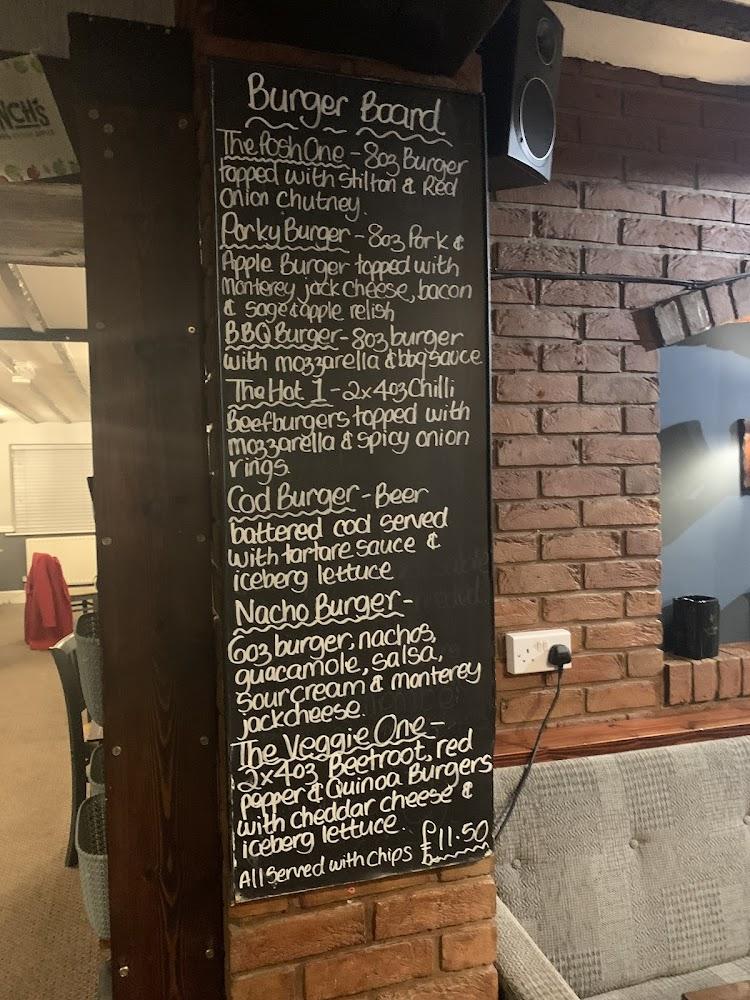 NCH'S
Burger Board
The Posh One - 8oz Burger
topped with Stilton & Red
onion chutney.
Porky Burger - 8oz Pork &
Apple Burger topped with
Monterey jack cheese, bacon
& sage & apple relish
BBQ Burger - 8oz burger
with mozzarella & bbq sauce
The Hot 1 - 2x4oz Chilli
Beefburgers topped with
mozzarella & spicy onion
rings.
Cod Burger - Beer
battered cod served
with tartare sauce &
iceberg lettuce
Nacho Burger -
6oz burger, nachos,
guacamole, salsa,
sour cream & monterey
jack cheese.
The Veggie One -
2x4oz Beetroot, red
pepper & Quinoa Burgers
with cheddar cheese &
iceberg lettuce.
All served with chips £11.50